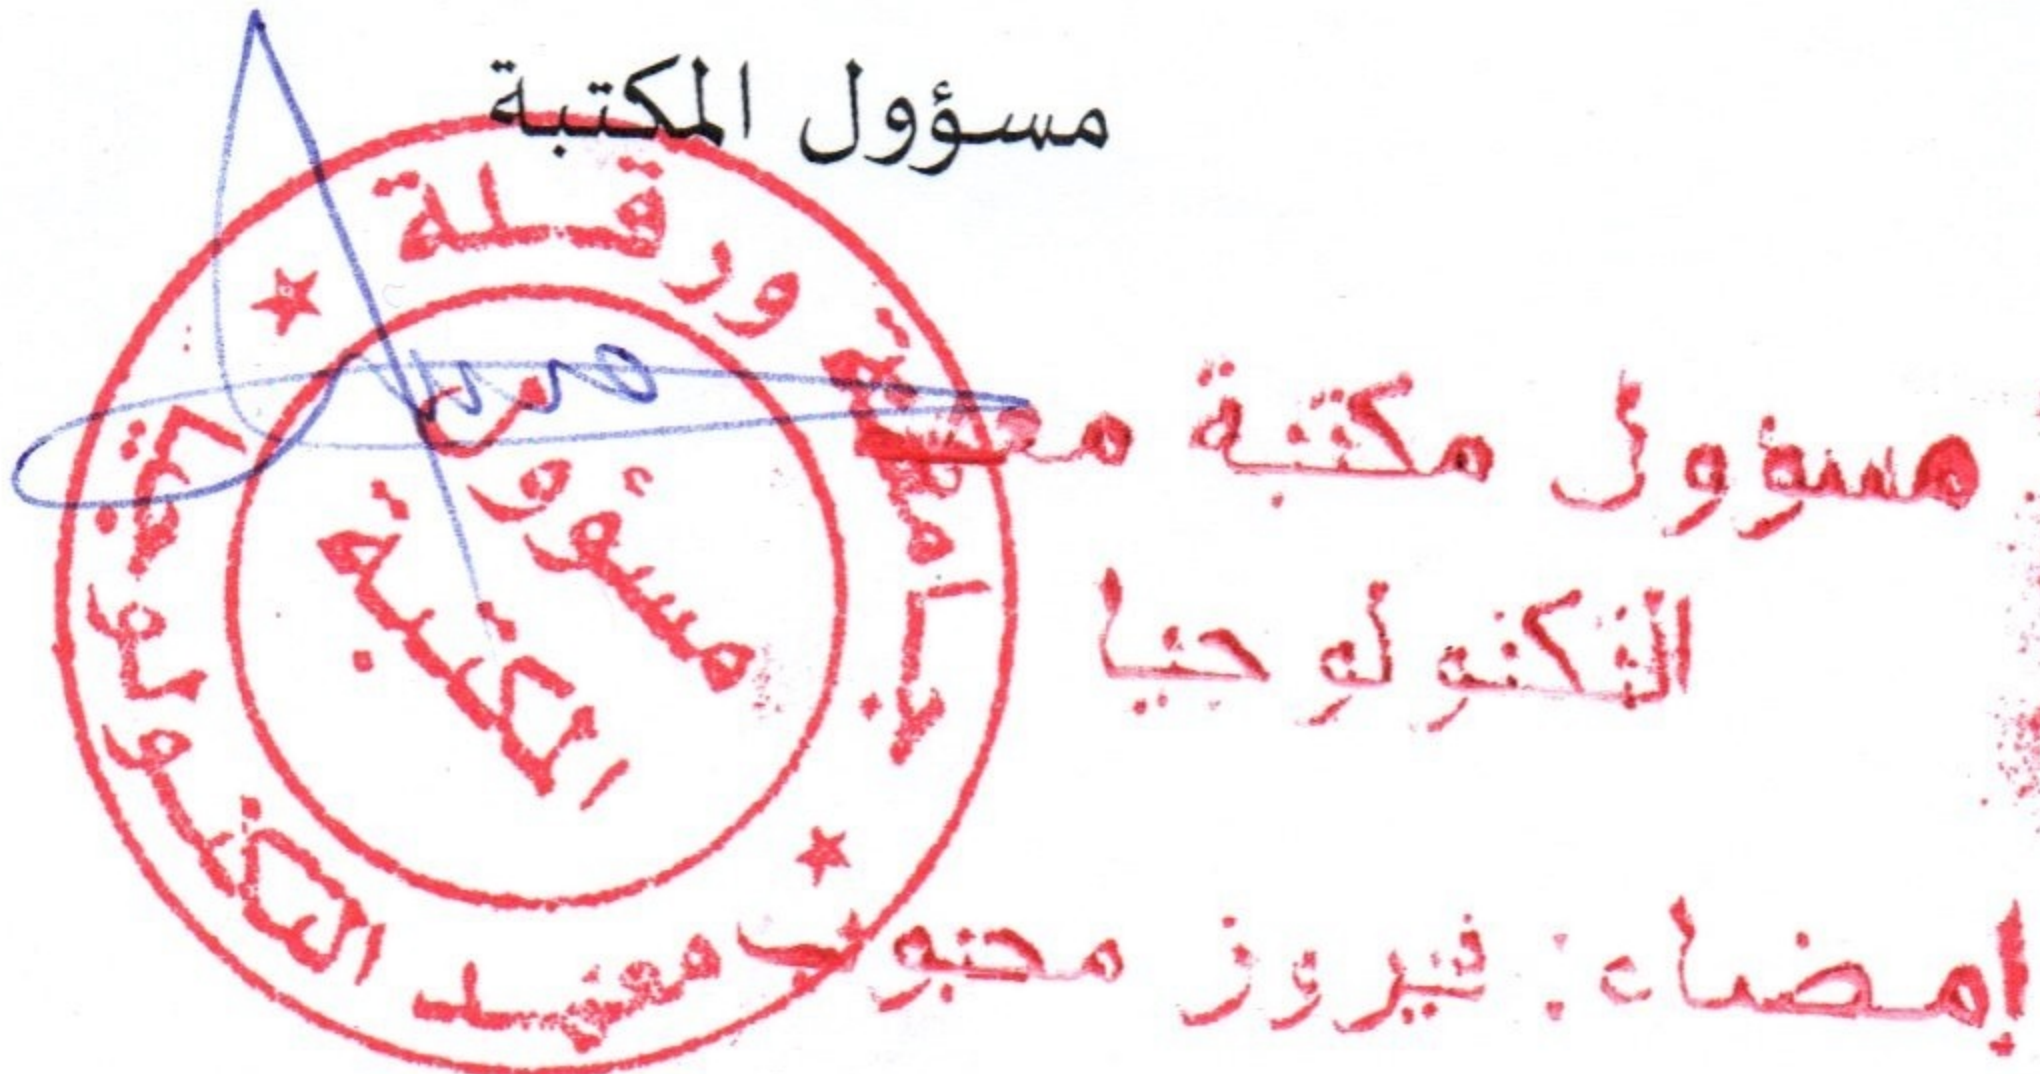 مسؤول المكتبة
جامعة ورقلة
معهد التكنولوجيا
مسؤول
المكتبة
مسؤول مكتبة معهد
التكنولوجيا
إمضاء: فيروز محبوب